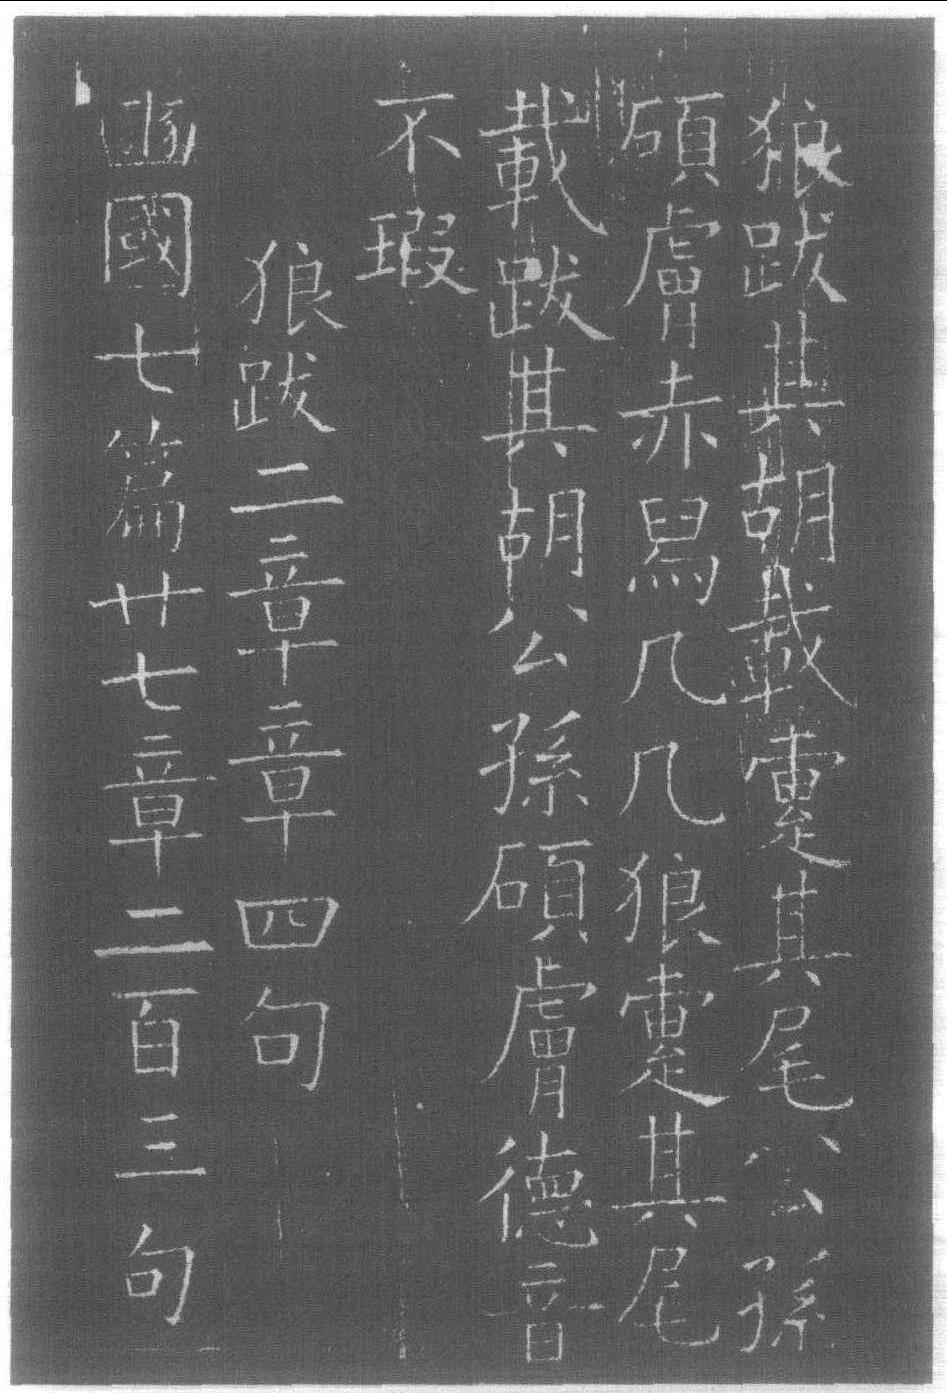 狼跋其胡載疐其尾公孫
碩膚赤舄几几狼疐其尾
載跋其胡公孫碩膚德音
不瑕
狼跋二章章四句
豳國七篇廿七章二百三句